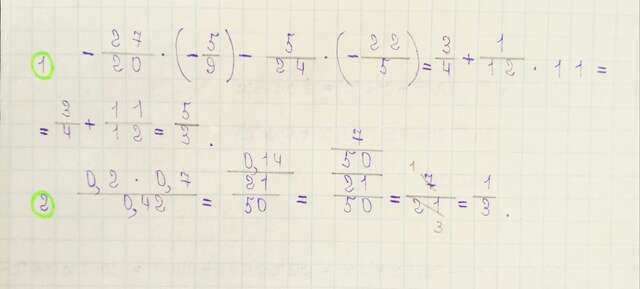 1 - 27/20 · (- 5/9) - 5/24 · (- 22/5) = 3/4 + 1/12 · 11 =
= 3/4 + 11/12 = 5/3 .
2 (0,2 · 0,7)/0,42 = 0,14/(21/50) = (7/50)/(21/50) = 7/21 = 1/3 .
1 3